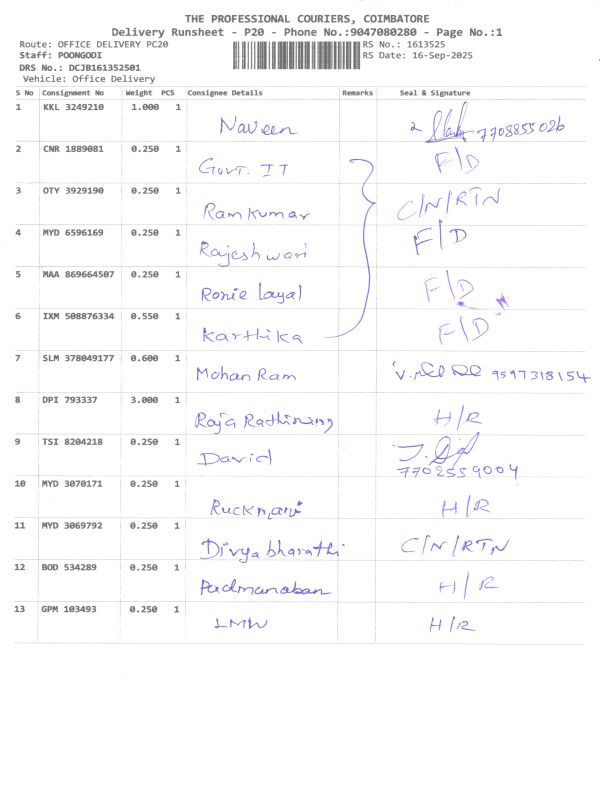 THE PROFESSIONAL COURIERS, COIMBATORE
Delivery Runsheet - P20 - Phone No.:9047080280 - Page No.:1
Route: OFFICE DELIVERY PC20 RS No.: 1613525
Staff: POONGODI RS Date: 16-Sep-2025
DRS No.: DCJB161352501
Vehicle: Office Delivery
S No Consignment No Weight PCS Consignee Details Remarks Seal & Signature
1 KKL 3249210 1.000 1 Naveen 7708855026
2 CNR 1889081 0.250 1 Govt. IT F/D
3 OTY 3929190 0.250 1 Ramkumar C/N/RTN
4 MYD 6596169 0.250 1 Rajeshwari F/D
5 MAA 869664507 0.250 1 Ronie Layal F/D
6 IXM 508876334 0.550 1 Karthika F/D
7 SLM 378049177 0.600 1 Mohan Ram 9597318154
8 DPI 793337 3.000 1 Raja Rathinam H/R
9 TSI 8204218 0.250 1 David 7702559004
10 MYD 3070171 0.250 1 Ruckmani H/R
11 MYD 3069792 0.250 1 Divyabharathi C/N/RTN
12 BOD 534289 0.250 1 Padmanaban H/R
13 GPM 103493 0.250 1 LMW H/R